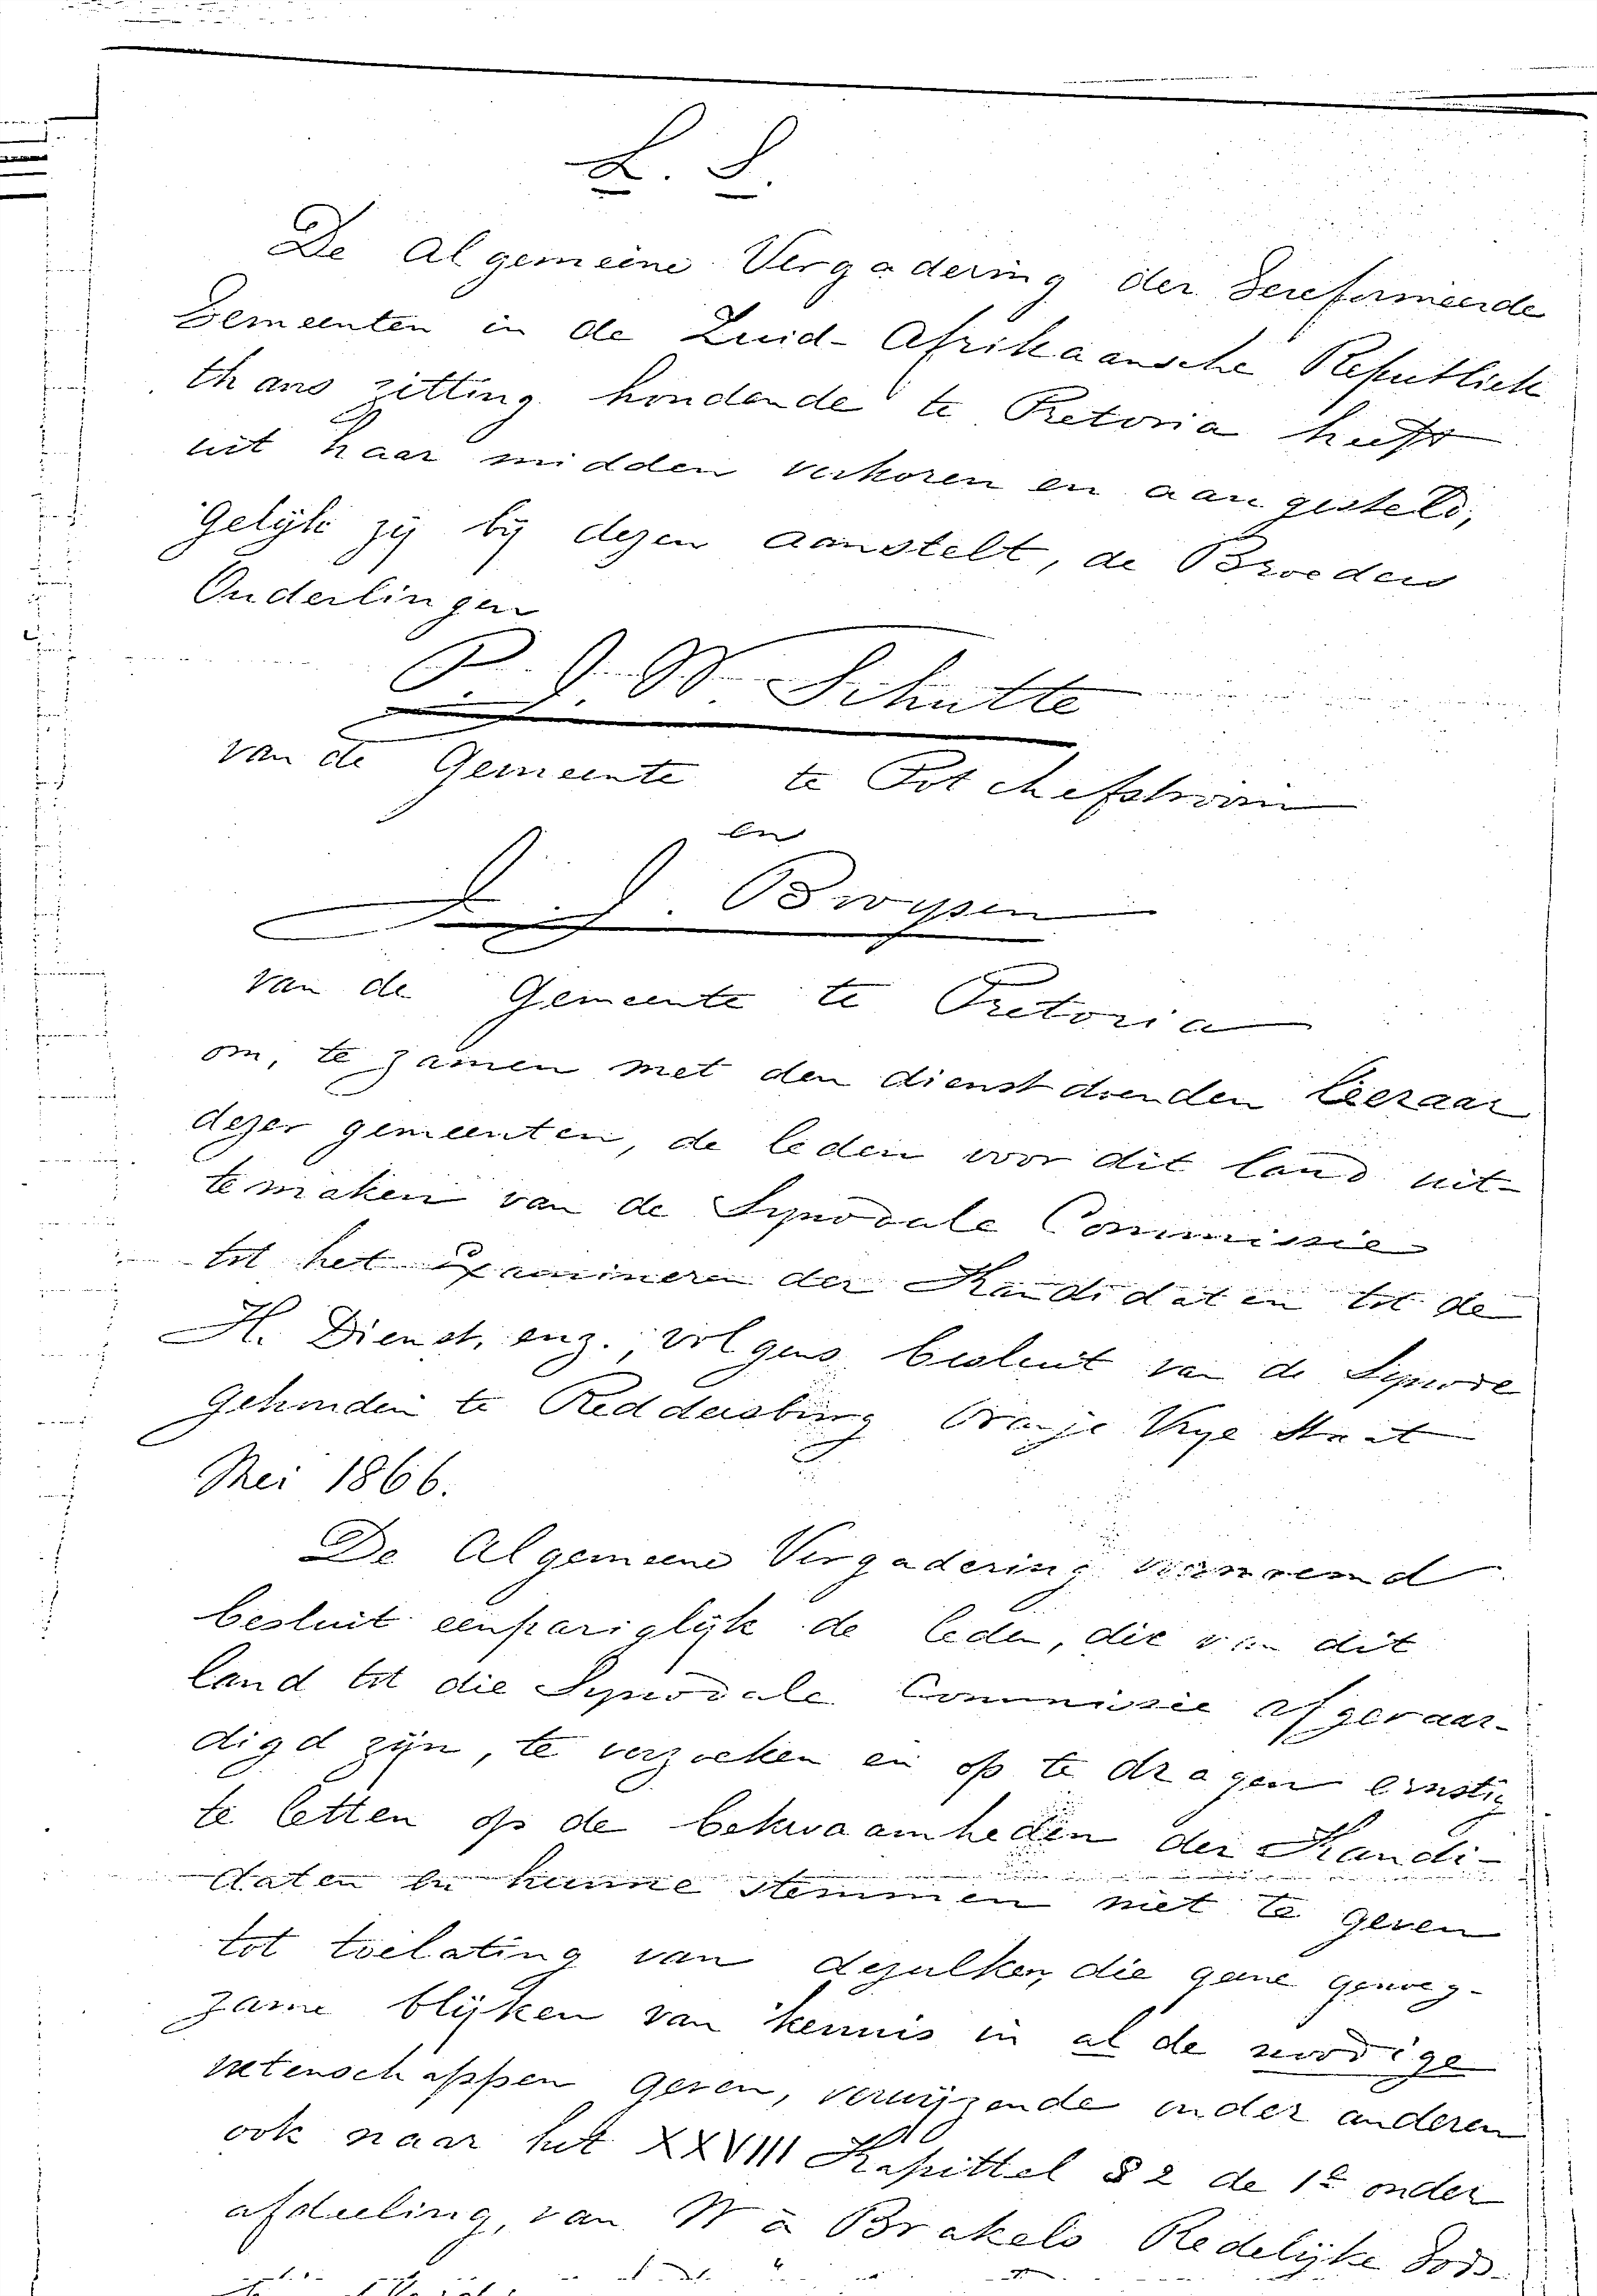 L. S.
De Algemeene Vergadering der Gereformeerde
Gemeenten in de Zuid-Afrikaansche Republiek
thans zitting houdende te Pretoria heeft
uit haar midden verkoren en aangesteld,
Gelijk zij bij dezen aanstelt, de Broeders
Ouderlingen
P. J. W. Schutte
van de Gemeente te Potchefstroom
en
J. J. Bruyn
van de Gemeente te Pretoria
om, te zamen met den dienstdoenden Leeraar
dezer gemeenten, de leden voor dit land uit-
temaken van de Synodale Commissie
tot het Examineren der Kandidaten tot de
H. Dienst, enz., volgens besluit van de Synode
Gehouden te Reddersburg Oranje Vrye Staat
Mei 1866.
De Algemeene Vergadering voornoemd
besluit eenpariglijk de leden, die van dit
land tot die Synodale Commissie afgevaar-
digd zijn, te verzoeken en op te dragen ernstig
te letten op de bekwaamheden der Kandi-
daten en hunne stemmen niet te geven
tot toelating van dezulken, die geene genoeg-
zame blijken van kennis in al de noodige
wetenschappen geven, verwijzende onder anderen
ook naar het XXVIII Kapittel § 2 de 1e onder
afdeeling, van W à Brakels Redelijke Gods-